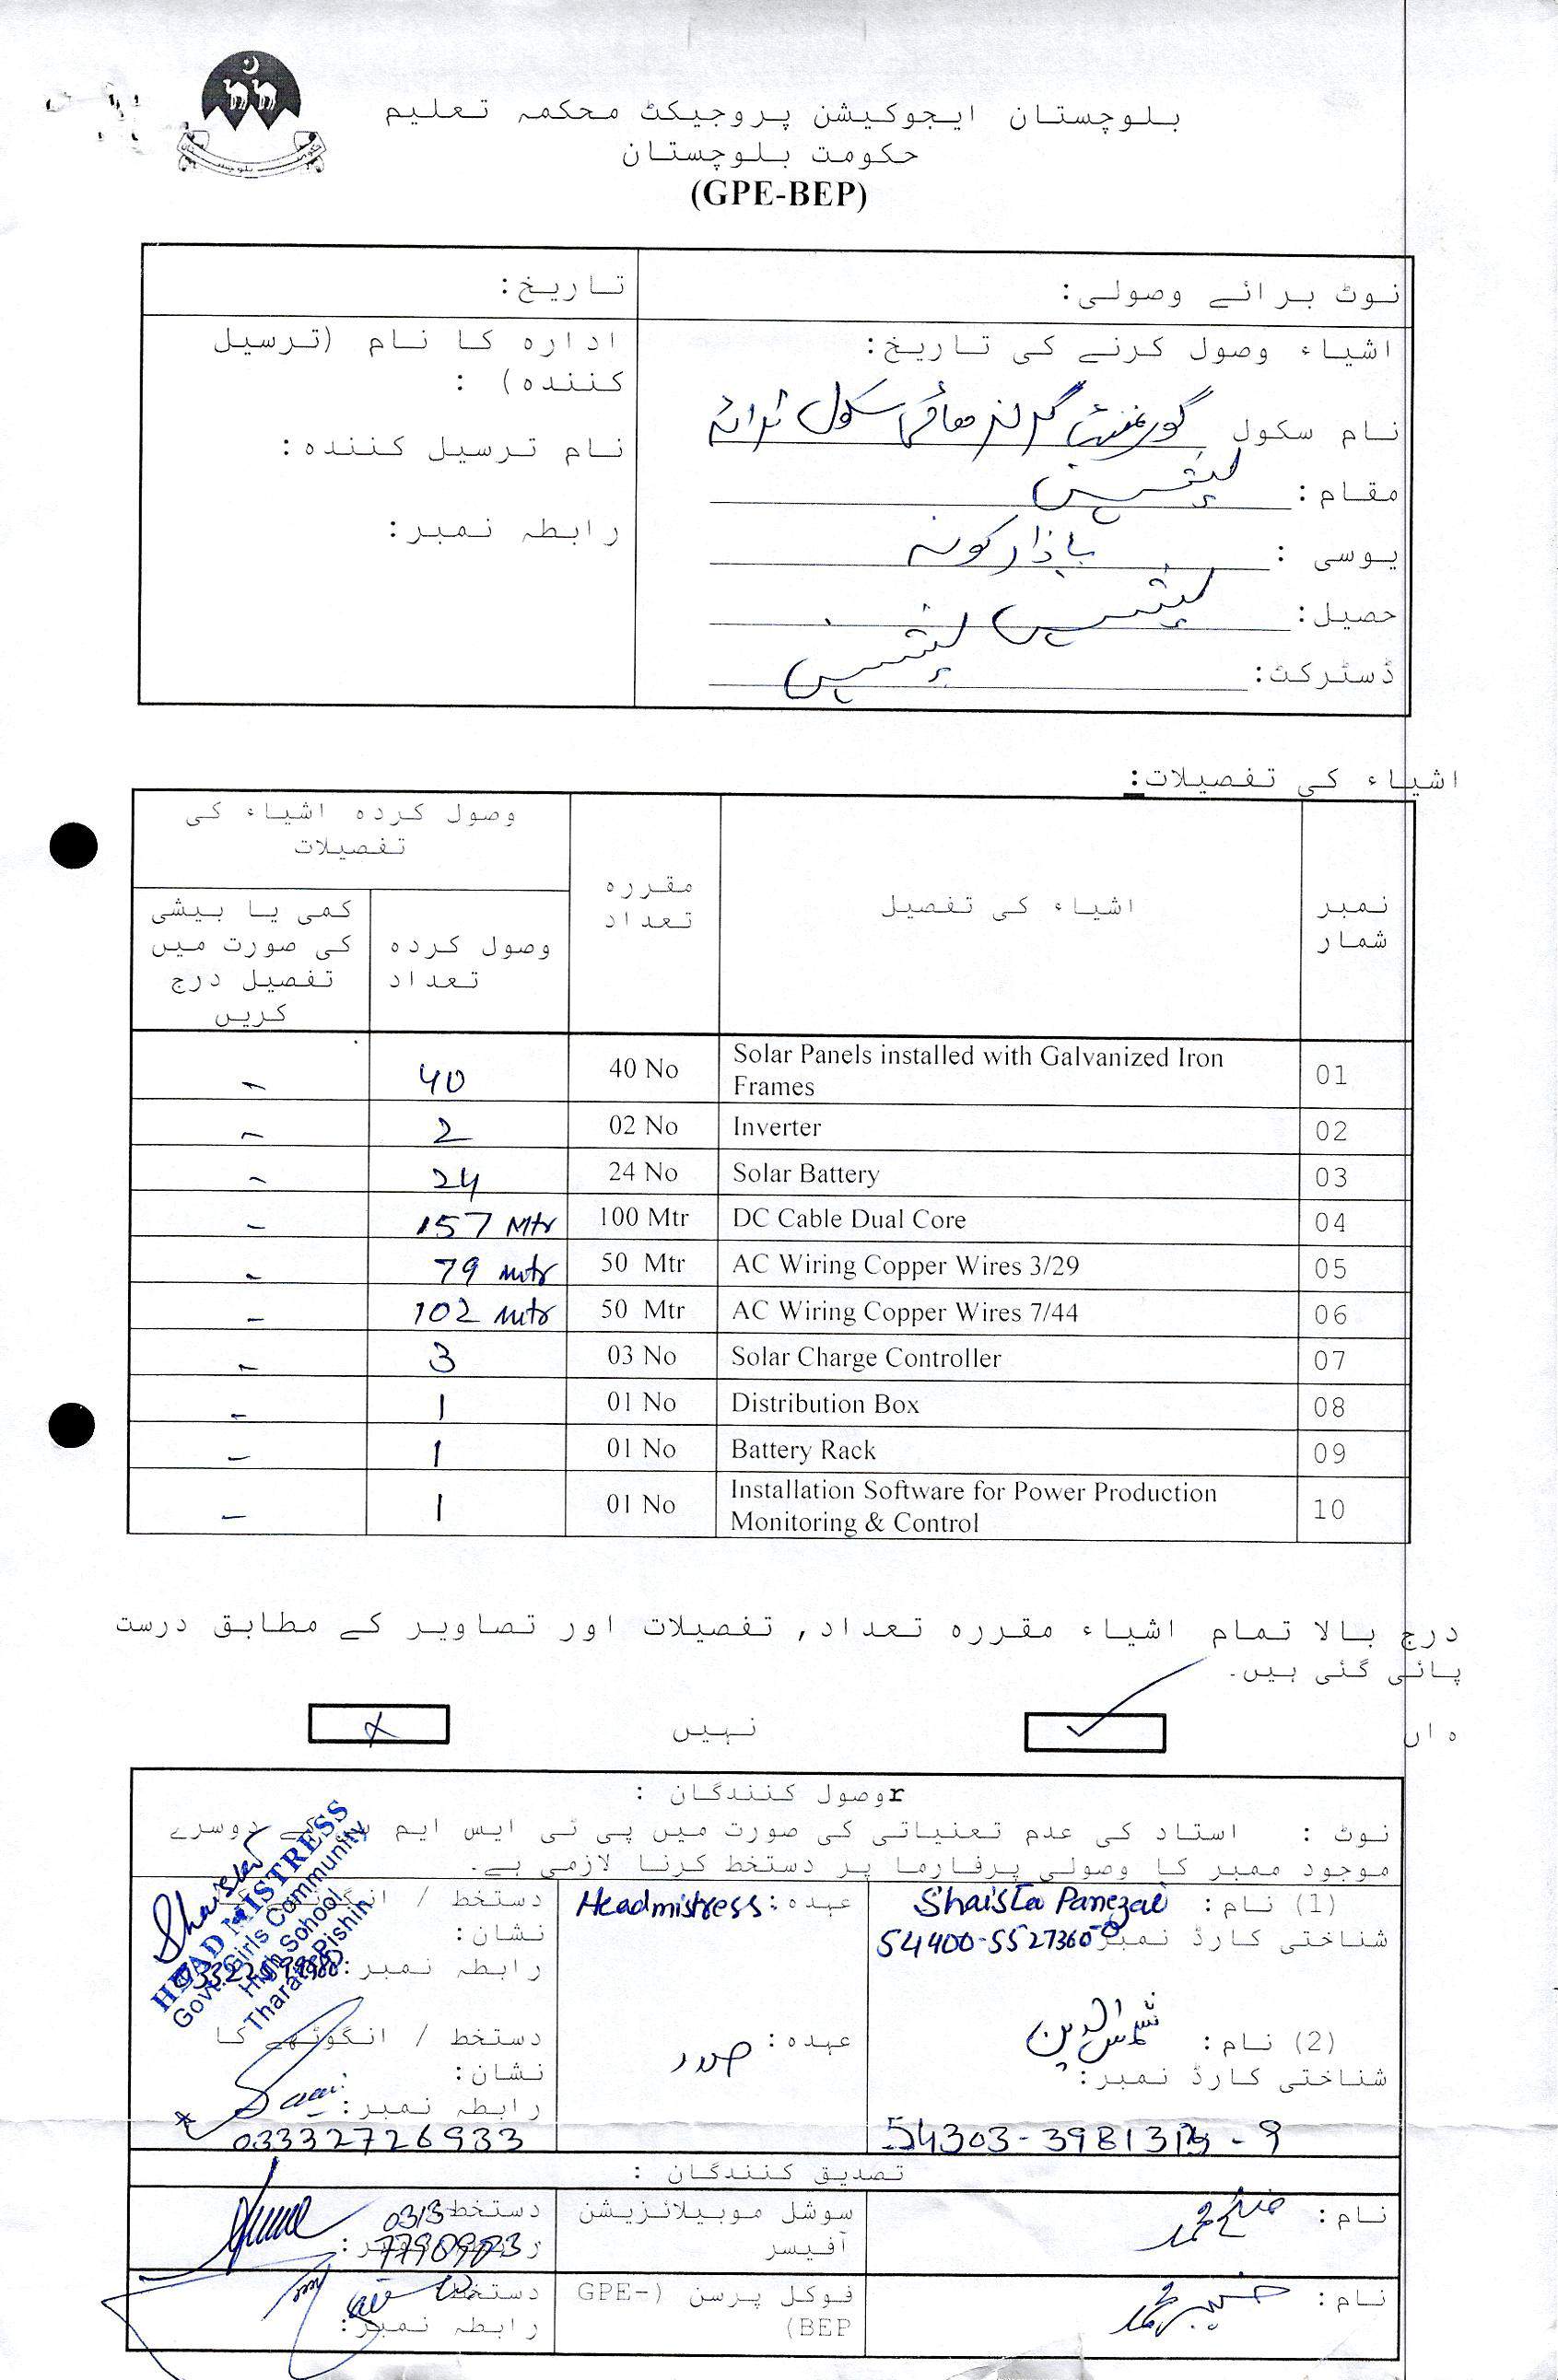 بلوچستان ایجوکیشن پروجیکٹ محکمہ تعلیم
حکومت بلوچستان
(GPE-BEP)
نوٹ برائے وصولی:
تاریخ:
اشیاء وصول کرنے کی تاریخ:
نام سکول گورنمنٹ گرلز ہائی سکول تراٹہ
مقام: پشین
یوسی : بازار کونہ
حصیل: پشین
ڈسٹرکٹ: پشین
ادارہ کا نام (ترسیل
کنندہ) :
نام ترسیل کنندہ:
رابطہ نمبر:
اشیاء کی تفصیلات:
نمبر شمار
اشیاء کی تفصیل
مقررہ تعداد
وصول کردہ اشیاء کی تفصیلات
وصول کردہ تعداد
کمی یا بیشی کی صورت میں تفصیل درج کریں
01 Solar Panels installed with Galvanized Iron Frames 40 No 40 -
02 Inverter 02 No 2 -
03 Solar Battery 24 No 24 -
04 DC Cable Dual Core 100 Mtr 157 Mtr -
05 AC Wiring Copper Wires 3/29 50 Mtr 79 mtr -
06 AC Wiring Copper Wires 7/44 50 Mtr 102 mtr -
07 Solar Charge Controller 03 No 3 -
08 Distribution Box 01 No 1 -
09 Battery Rack 01 No 1 -
10 Installation Software for Power Production Monitoring & Control 01 No 1 -
درج بالا تمام اشیاء مقررہ تعداد, تفصیلات اور تصاویر کے مطابق درست
پائی گئی ہیں۔
ہاں ✓ نہیں x
rوصول کنندگان :
نوٹ : استاد کی عدم تعنیاتی کی صورت میں پی ٹی ایس ایم سی کے دوسرے
موجود ممبر کا وصولی پرفارما پر دستخط کرنا لازمی ہے۔
(1) نام: Shaista Panezai
شناختی کارڈ نمبر 54400-5527360-0
عہدہ: Headmistress
دستخط / انگوٹھے
نشان:
رابطہ نمبر:
HEAD MISTRESS
Govt. Girls Community
High School
Tharata Pishin
(2) نام: شمس الدین
شناختی کارڈ نمبر:
عہدہ: صدر
دستخط / انگوٹھے کا
نشان:
رابطہ نمبر:
03332726933
تصدیق کنندگان :
نام:
سوشل موبیلائزیشن آفیسر
دستخط
0313
7790903
نام:
فوکل پرسن (GPE-BEP)
دستخط
رابطہ نمبر: